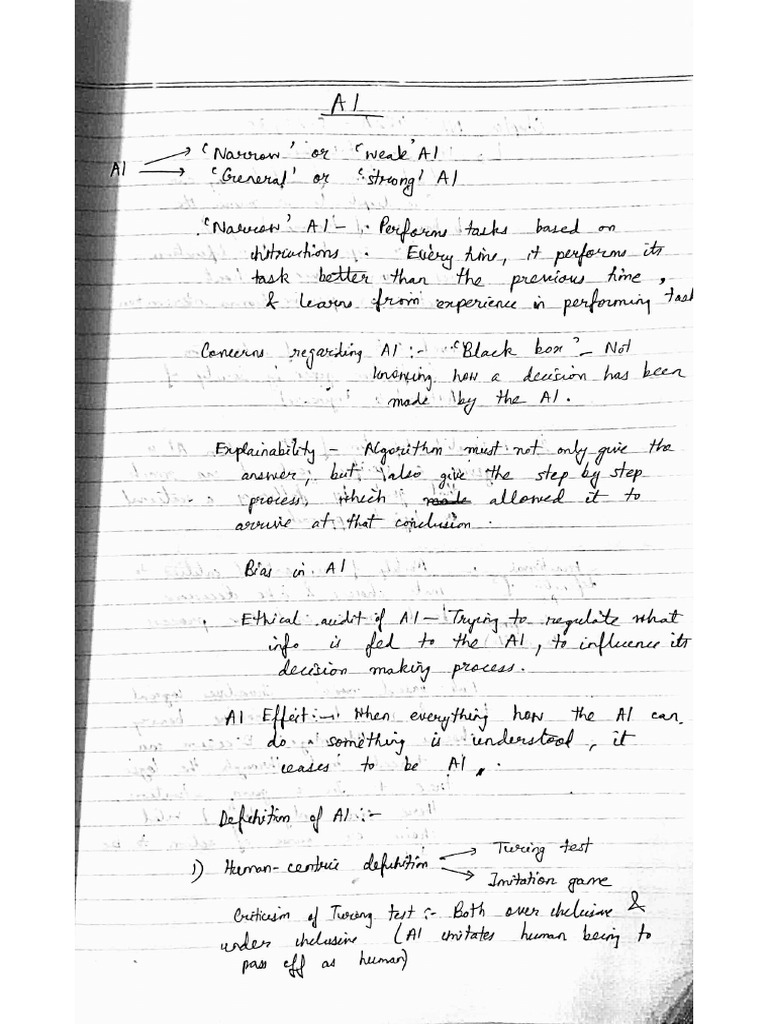 AI
AI → 'Narrow' or 'weak' AI
→ 'General' or 'strong' AI
'Narrow' AI - . Performs tasks based on
instructions . Every time, it performs its
task better than the previous time ,
& learns from experience in performing task
Concerns regarding AI :- 'Black box' - Not
knowing how a decision has been
made by the AI .
Explainability - Algorithm must not only give the
answer, but also give the step by step
process, which made allowed it to
arrive at that conclusion .
Bias in AI
Ethical audit of AI - Trying to regulate what
info is fed to the AI , to influence its
decision making process .
AI Effect :- When everything how the AI can
do something is understood , it
ceases to be AI .
Definition of AI :-
1) Human-centric definition → Turing test
→ Imitation game
Criticism of Turing test :- Both over inclusive &
under inclusive (AI imitates human being to
pass off as human)